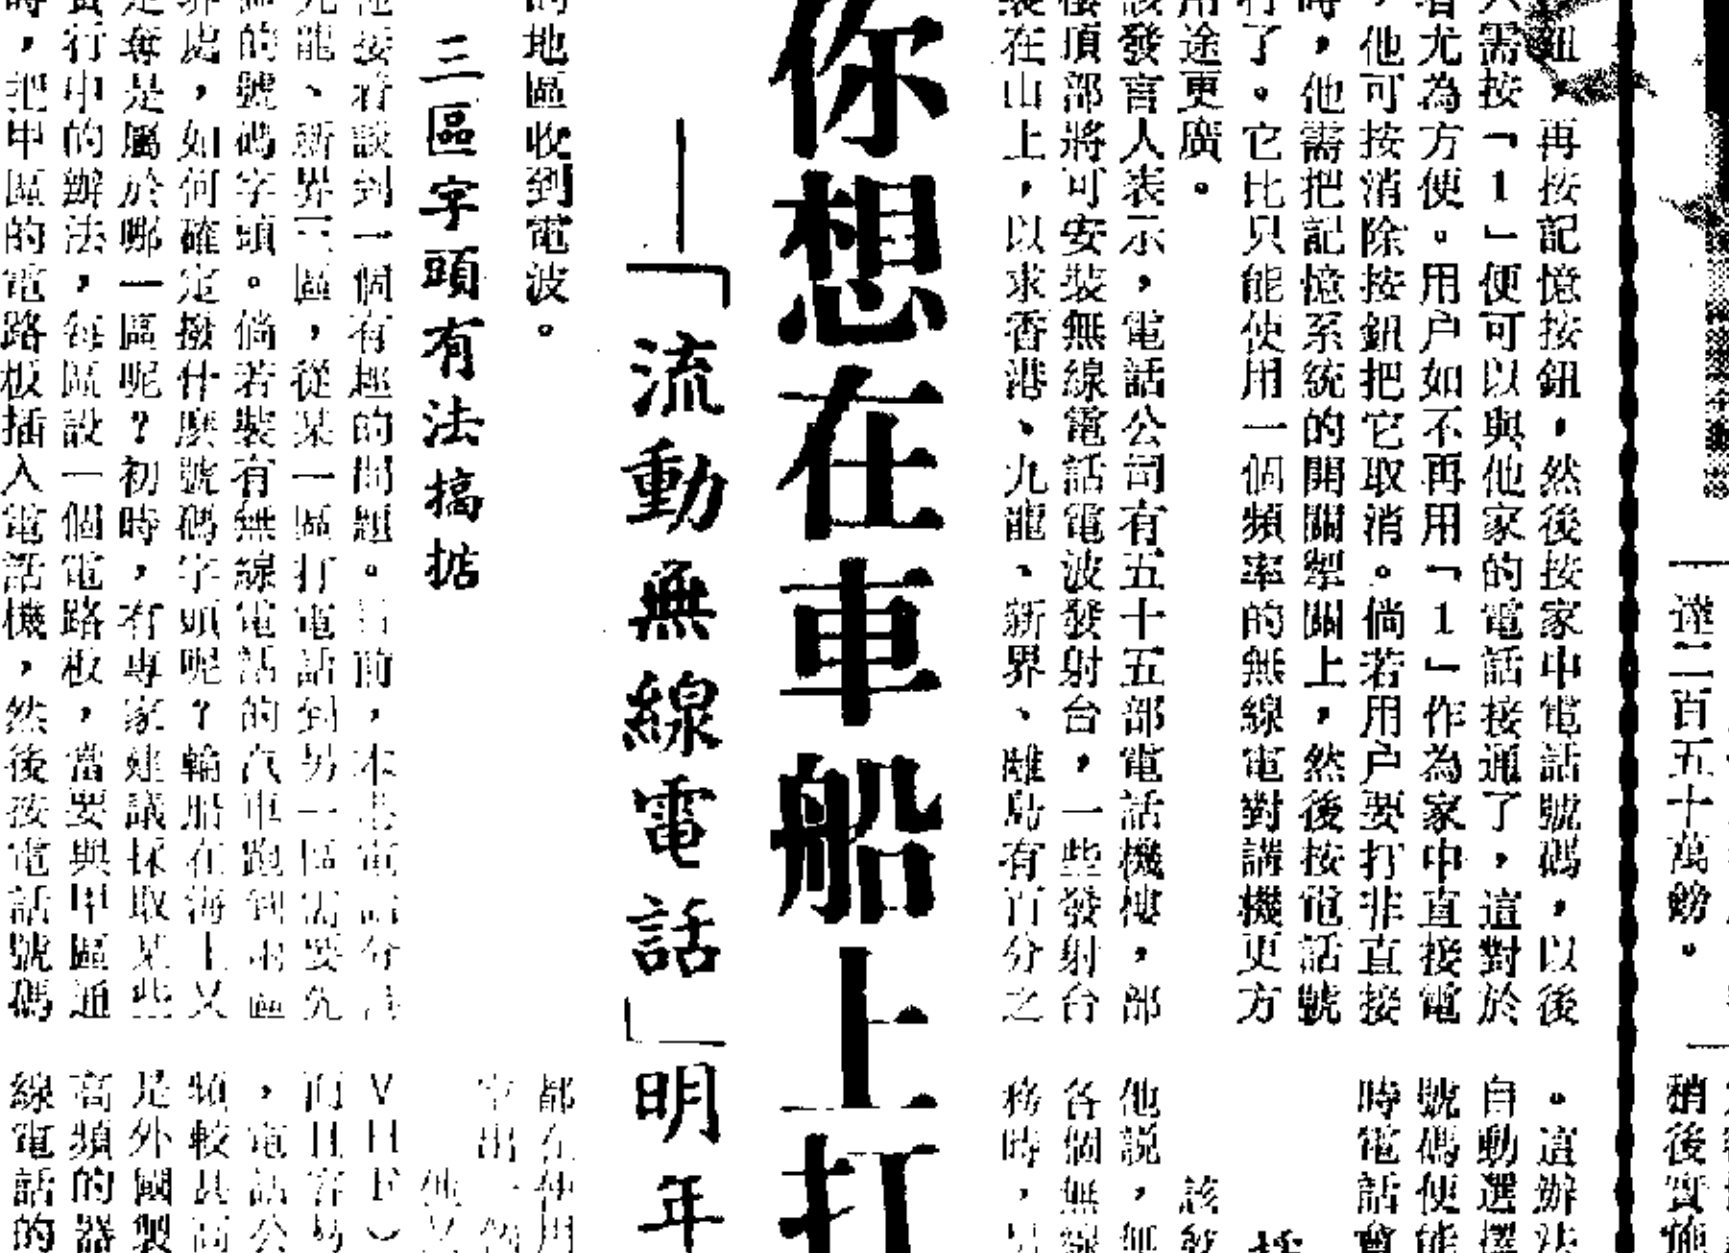 達二百五十萬鎊。
稍後實施
鈕，再按記憶按鈕，然後按家中電話號碼，以後
只需按「1」便可以與他家的電話接通了，這對於
者尤為方便。用户如不再用「1」作為家中直接電
，他可按消除按鈕把它取消。倘若用户要打非直接
時，他需把記憶系統的開關掣關上，然後按電話號
行了。它比只能使用一個頻率的無線電對講機更方
用途更廣。
該發言人表示，電話公司有五十五部電話機樓，部
樓頂部將可安裝無線電話電波發射台，一些發射台
裝在山上，以求香港、九龍、新界、離島有百分之
你想在車船上打
——「流動無線電話」明年
的地區收到電波。
三區字頭有法搞掂
他接着談到一個有趣的問題。目前，本港電話分
九龍、新界三區，從某一區打電話到另一區需要先
的號碼字頭。倘若裝有無線電話的汽車跑到兩區
界處，如何確定撥什麼號碼字頭呢？輪船在海上又
定奪是屬於哪一區呢？初時，有專家建議採取某些
實行中的辦法，每區設一個電路板，當要與甲區通
時，把甲區的電路板插入電話機，然後按電話號碼
。這辦法
自動選擇
號碼便能
時電話會
該發
他説，無
各個無線
務時，
都在使用
VHF）
而且容易
，電話公
頻較甚高
是外國製
高頻的器
線電話的